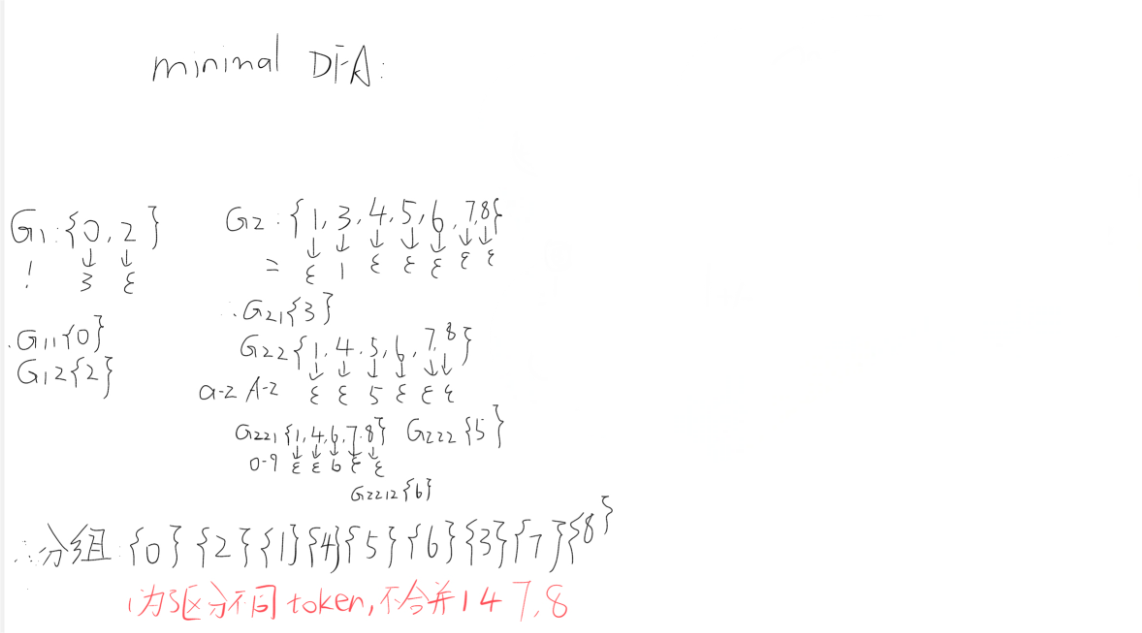 minimal DFA:
G1:{0,2}
↓ ↓
! 3 ε
.G11{0}
G12{2}
G2:{1,3,4,5,6,7,8}
↓ ↓ ↓ ↓ ↓ ↓ ↓
= ε 1 ε ε ε ε ε
∴G21{3}
G22{1,4,5,6,7,8}
↓ ↓ ↓ ↓ ↓ ↓
a-z A-Z ε ε 5 ε ε ε
G221{1,4,6,7,8} G222{5}
↓ ↓ ↓ ↓ ↓
0-9 ε ε 6 ε ε
G2212{6}
∴分组:{0}{2}{1}{4}{5}{6}{3}{7}{8}
(为了区分不同token,不合并1 4 7,8